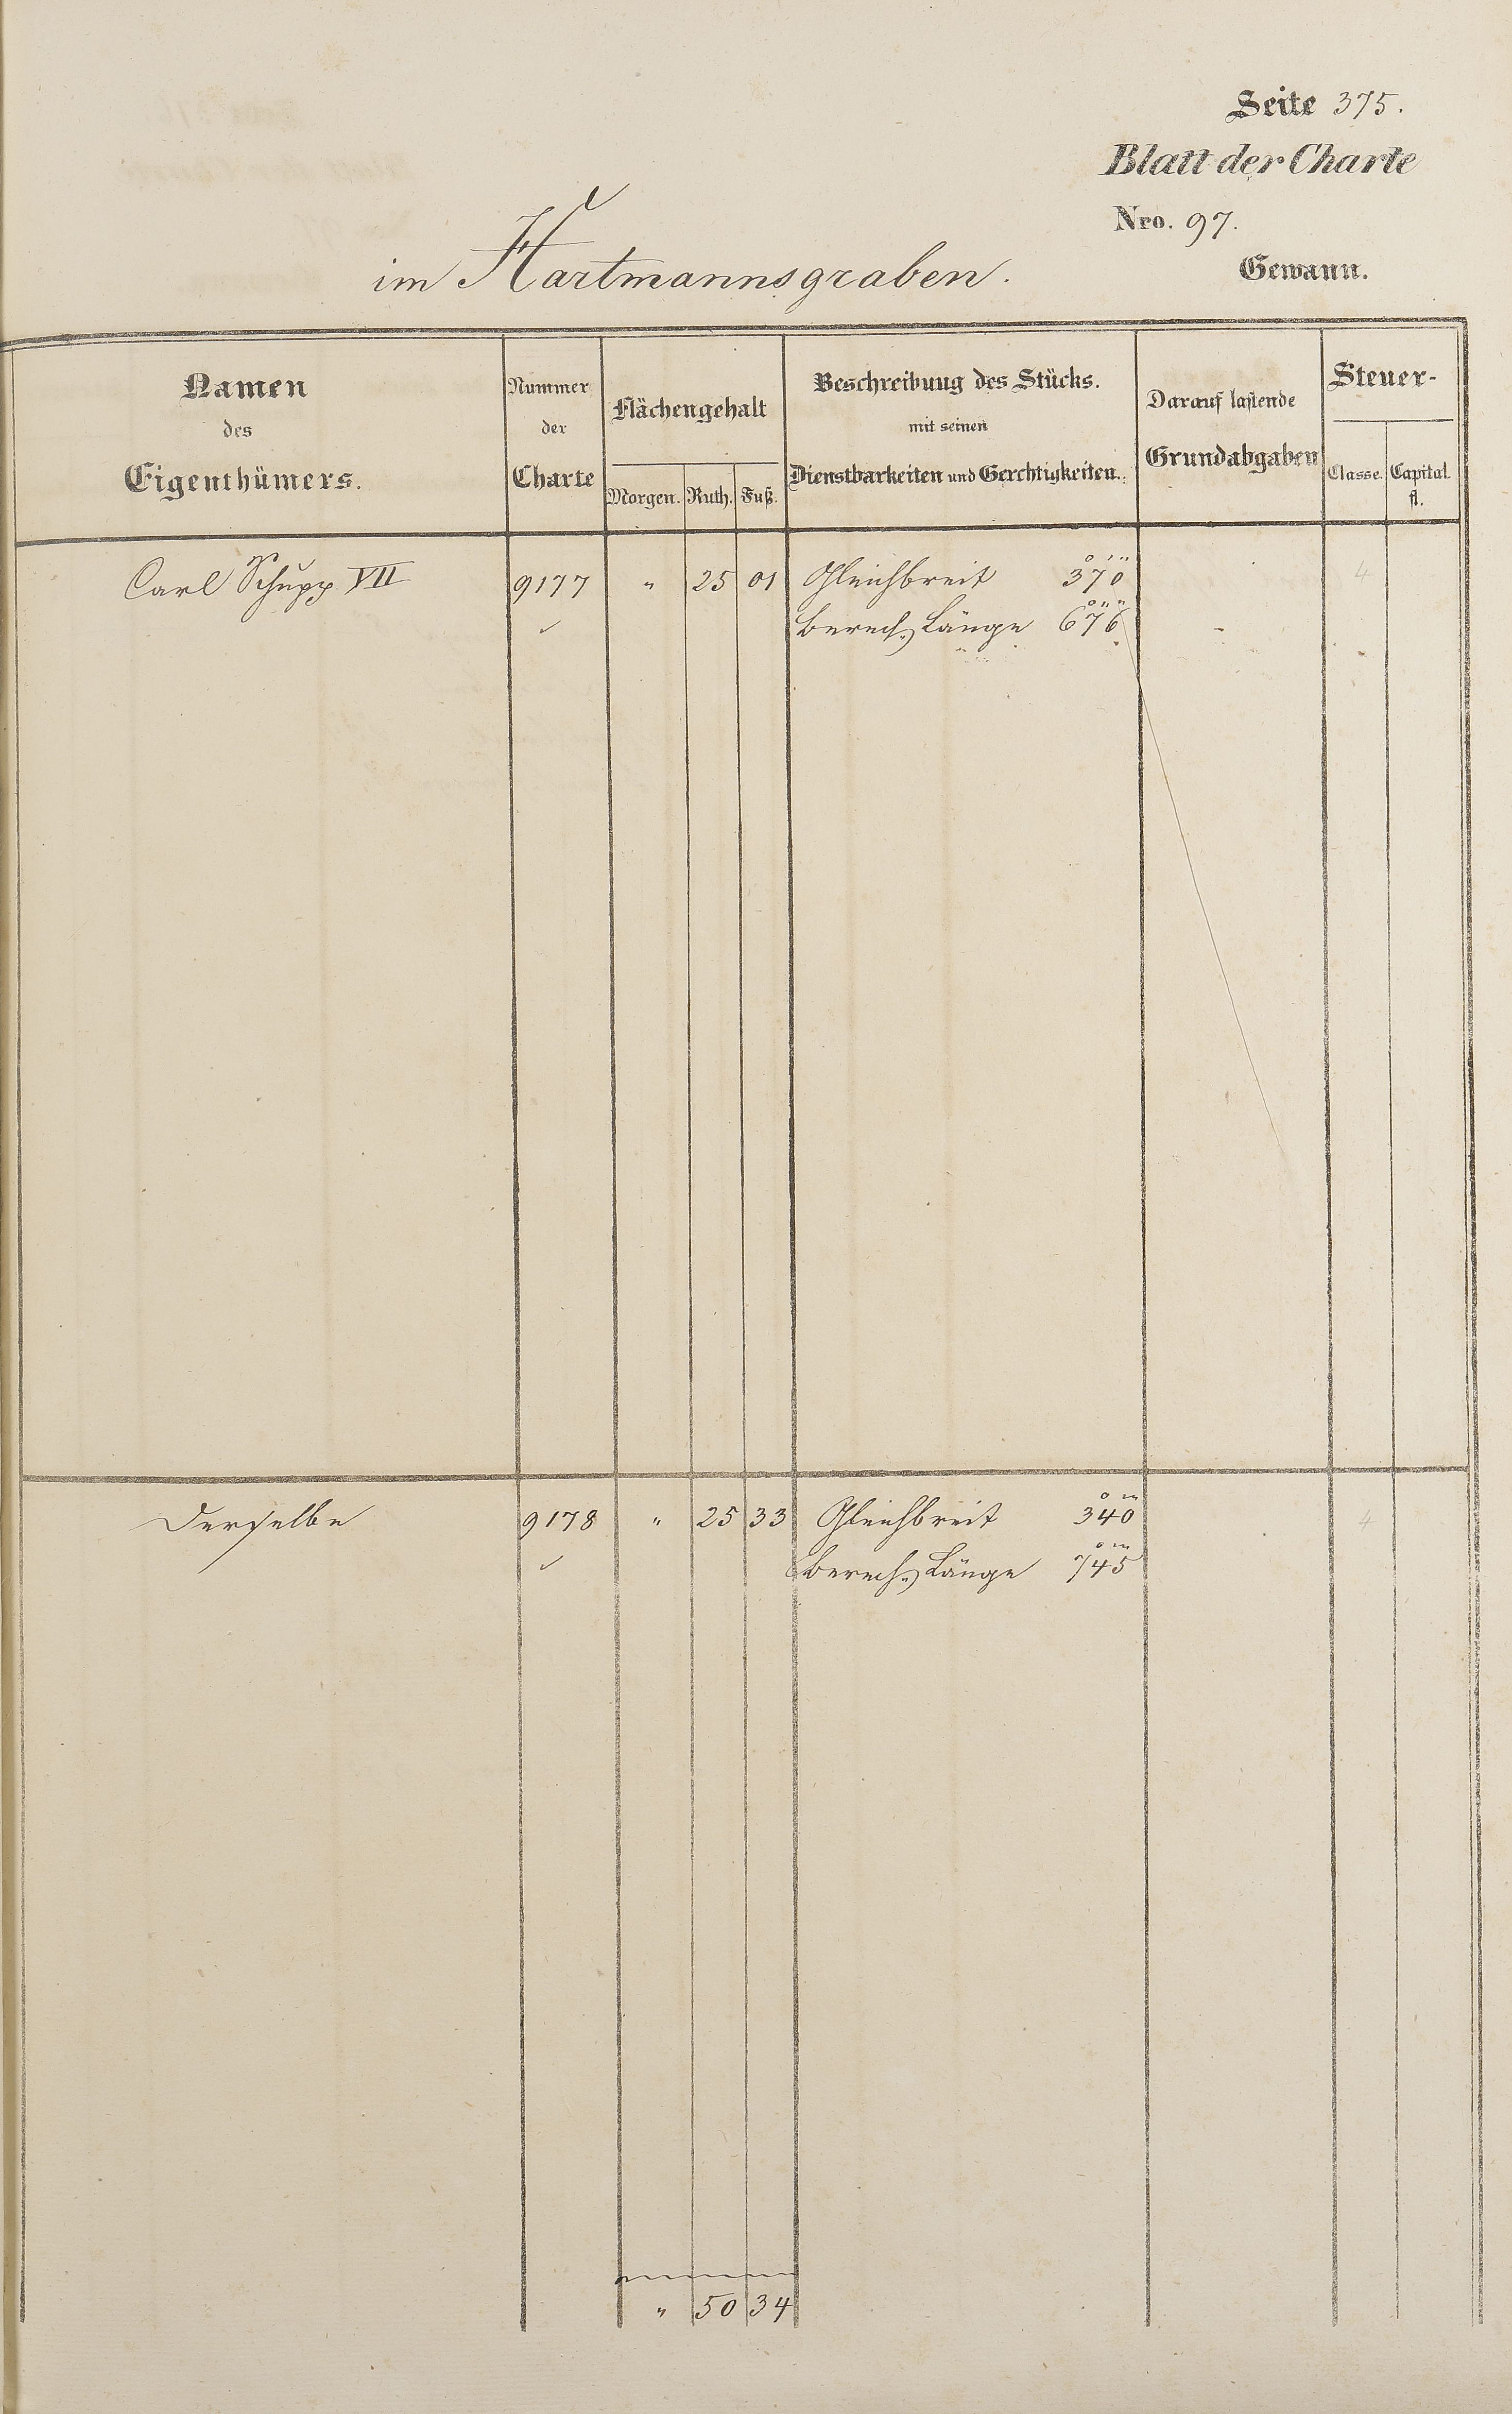 Seite 375.
Blatt der Charte
Nro. 97.
im Hartmannsgraben. Gewann.
Namen des Eigenthümers.
Nummer der Charte
Flächengehalt
Morgen. Ruth. Fuß.
Beschreibung des Stücks.
mit seinen
Dienstbarkeiten und Gerchtigkeiten.
Darauf lastende
Grundabgaben
Steuer-
Classe. Capital. fl.
Carl Schupp VII 9177 " 25 01 Gleichbreit 3°7'0" 4
✓ berech. Länge 6°7'6"
Derselbe 9178 " 25 33 Gleichbreit 3°4'0" 4
✓ berech. Länge 7°4'5"
" 50 34